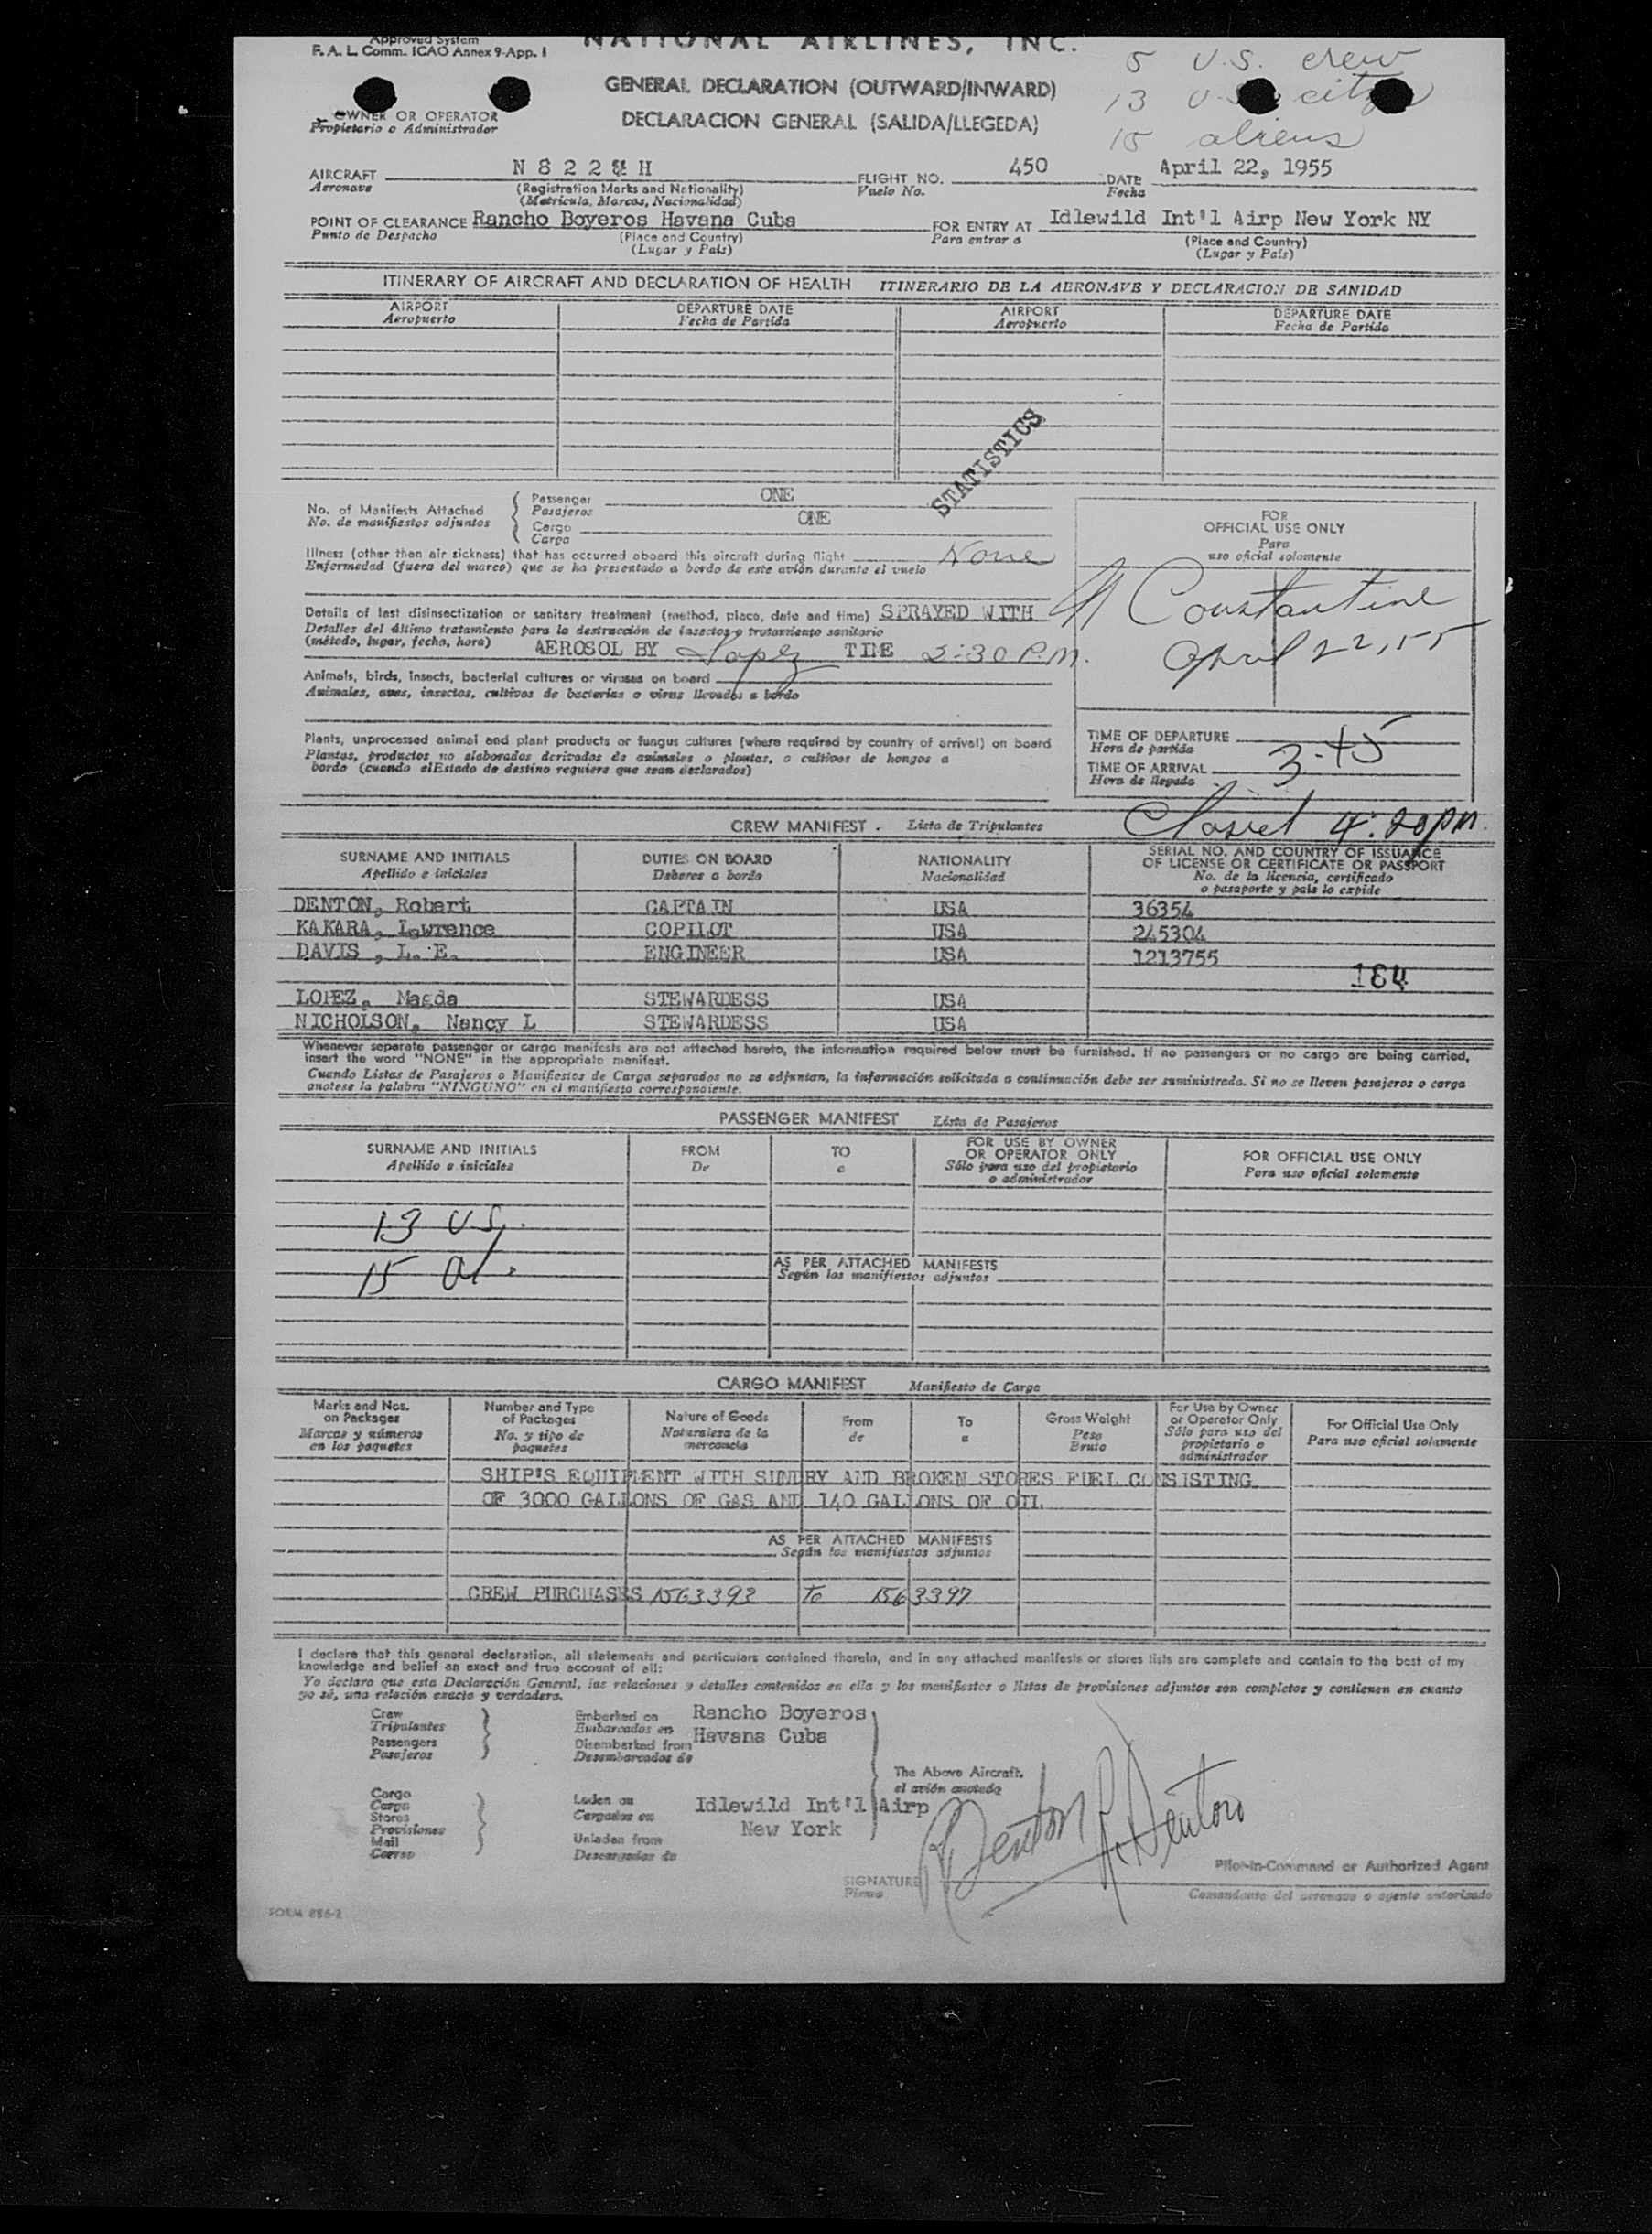 Approved System
F. A. L. Comm. ICAO Annex 9-App. 1
NATIONAL AIRLINES, INC.
5 U.S. crew
GENERAL DECLARATION (OUTWARD/INWARD)
13 U.S. citz
OWNER OR OPERATOR
Propietario o Administrador
DECLARACION GENERAL (SALIDA/LLEGEDA)
15 aliens
AIRCRAFT N 8 2 2 H FLIGHT NO. 450 DATE April 22, 1955
Aeronave (Registration Marks and Nationality) Vuelo No. Fecha
(Matricula, Marcas, Nacionalidad)
POINT OF CLEARANCE Rancho Boyeros Havana Cuba FOR ENTRY AT Idlewild Int'l Airp New York NY
Punto de Despacho (Place and Country) Para entrar a (Place and Country)
(Lugar y País) (Lugar y País)
ITINERARY OF AIRCRAFT AND DECLARATION OF HEALTH ITINERARIO DE LA AERONAVE Y DECLARACION DE SANIDAD
AIRPORT DEPARTURE DATE AIRPORT DEPARTURE DATE
Aeropuerto Fecha de Partida Aeropuerto Fecha de Partida
STATISTICS
No. of Manifests Attached
No. de manifiestos adjuntos
Passenger ONE
Pasajeros
Cargo ONE
Carga
FOR
OFFICIAL USE ONLY
Para
uso oficial solamente
Illness (other than air sickness) that has occurred aboard this aircraft during flight None
Enfermedad (fuera del mareo) que se ha presentado a bordo de este avión durante el vuelo
Constantine
April 22, 55
Details of last disinsectization or sanitary treatment (method, place, date and time) SPRAYED WITH
Detalles del último tratamiento para la destrucción de insectos o tratamiento sanitario
(método, lugar, fecha, hora) AEROSOL BY Lopez TIME 2:30 P.M.
Animals, birds, insects, bacterial cultures or viruses on board
Animales, aves, insectos, cultivos de bacterias o virus llevados a bordo
Plants, unprocessed animal and plant products or fungus cultures (where required by country of arrival) on board
Plantas, productos no elaborados derivados de animales o plantas, o cultivos de hongos a
bordo (cuando elEstado de destino requiera que sean declarados)
TIME OF DEPARTURE
Hora de partida
TIME OF ARRIVAL 3-45
Hora de llegada
CREW MANIFEST . Lista de Tripulantes
4:20 PM.
SURNAME AND INITIALS DUTIES ON BOARD NATIONALITY SERIAL NO. AND COUNTRY OF ISSUANCE
OF LICENSE OR CERTIFICATE OR PASSPORT
Apellido e iniciales Deberes a bordo Nacionalidad No. de la licencia, certificado
o pasaporte y país lo expide
DENTON, Robert CAPTAIN USA 36354
KAKARA, Lawrence COPILOT USA 245304
DAVIS , L. E. ENGINEER USA 1213755
184
LOPEZ, Magda STEWARDESS USA
NICHOLSON, Nancy L STEWARDESS USA
Whenever separate passenger or cargo manifests are not attached hereto, the information required below must be furnished. If no passengers or no cargo are being carried,
insert the word "NONE" in the appropriate manifest.
Cuando Listas de Pasajeros o Manifiestos de Carga separados no se adjuntan, la información solicitada a continuación debe ser suministrada. Si no se lleven pasajeros o carga
anotese la palabra "NINGUNO" en el manifiesto correspondiente.
PASSENGER MANIFEST Lista de Pasajeros
SURNAME AND INITIALS FROM TO FOR USE BY OWNER
OR OPERATOR ONLY FOR OFFICIAL USE ONLY
Apellido e iniciales De a Sólo para uso del propietario
o administrador Para uso oficial solamente
13 U.S.
15 al.
AS PER ATTACHED MANIFESTS
Según los manifiestos adjuntos
CARGO MANIFEST Manifiesto de Carga
Marks and Nos.
on Packages
Marcas y números
en los paquetes
Number and Type
of Packages
No. y tipo de
paquetes
Nature of Goods
Naturaleza de la
mercancia
From
de
To
a
Gross Weight
Peso
Bruto
For Use by Owner
or Operator Only
Sólo para uso del
propietario o
administrador
For Official Use Only
Para uso oficial solamente
SHIP'S EQUIPMENT WITH SUNDRY AND BROKEN STORES FUEL CONSISTING
OF 3000 GALLONS OF GAS AND 140 GALLONS OF OIL
AS PER ATTACHED MANIFESTS
Según los manifiestos adjuntos
CREW PURCHASES 1563393 To 1563397
I declare that this general declaration, all statements and particulars contained therein, and in any attached manifests or stores lists are complete and contain to the best of my
knowledge and belief an exact and true account of all:
Yo declaro que esta Declaración General, las relaciones y detalles contenidos en ella y los manifiestos o listas de provisiones adjuntos son completos y contienen en cuanto
yo sé, una relación exacta y verdadera.
Crew
Tripulantes
Passengers
Pasajeros
Embarked on Rancho Boyeros
Embarcados en
Disembarked from Havana Cuba
Desembarcados de
The Above Aircraft.
el avión anotado
Cargo
Carga
Stores
Provisiones
Mail
Correo
Laden on Idlewild Int'l Airp
Cargados en
New York
Unladen from
Descargados de
R Denton R. Denton
Pilot-in-Command or Authorized Agent
SIGNATURE
Firma
Comandante del aeronave o agente autorizado
FORM 886-2